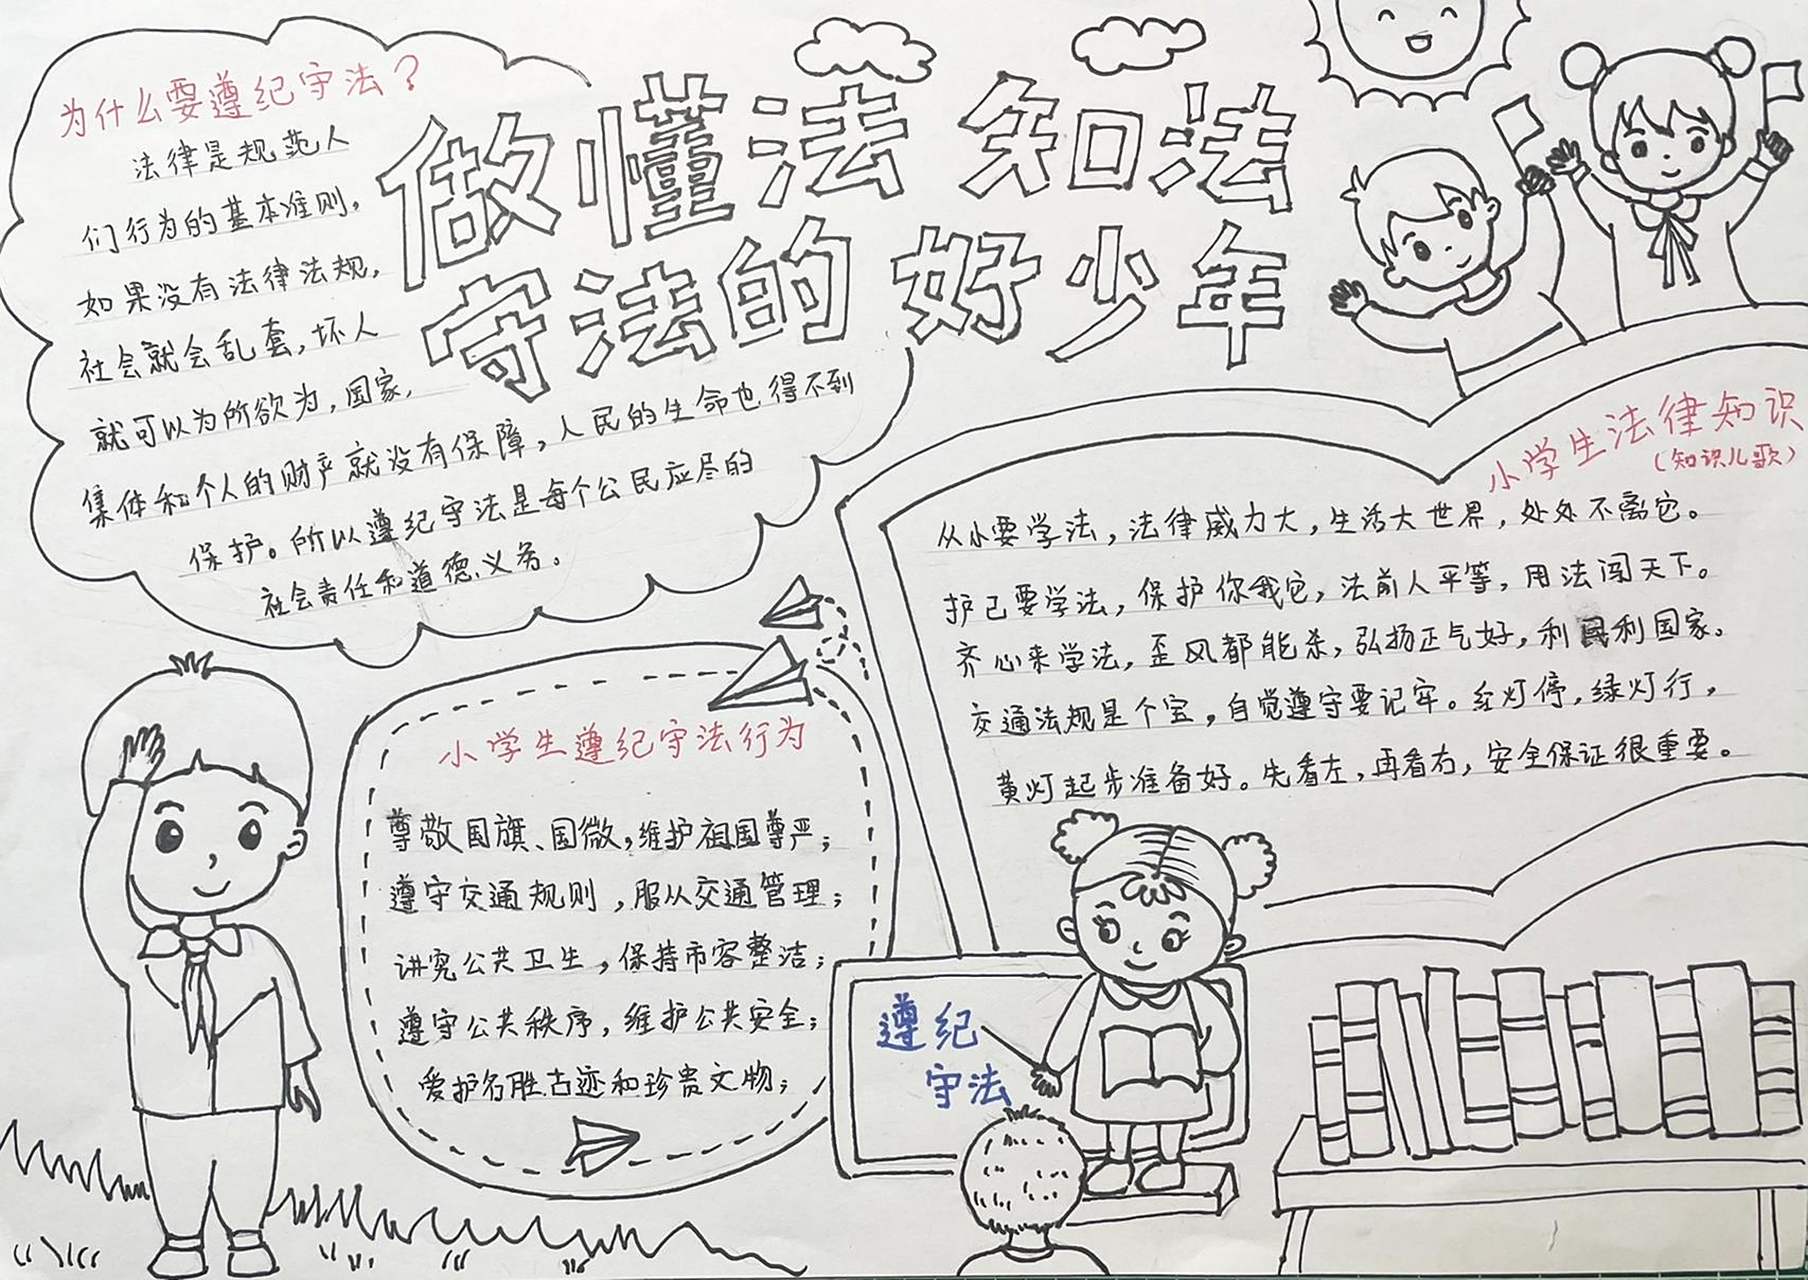 做懂法 知法
守法的好少年
为什么要遵纪守法？
法律是规范人
们行为的基本准则，
如果没有法律法规，
社会就会乱套，坏人
就可以为所欲为，国家，
集体和个人的财产就没有保障，人民的生命也得不到
保护。所以遵纪守法是每个公民应尽的
社会责任和道德义务。
小学生法律知识
（知识儿歌）
从小要学法，法律威力大，生活大世界，处处不离它。
护己要学法，保护你我它，法前人平等，用法闯天下。
齐心来学法，歪风都能杀，弘扬正气好，利民利国家。
交通法规是个宝，自觉遵守要记牢。红灯停，绿灯行，
黄灯起步准备好。先看左，再看右，安全保证很重要。
小学生遵纪守法行为
尊敬国旗、国微，维护祖国尊严；
遵守交通规则，服从交通管理；
讲究公共卫生，保持市容整洁；
遵守公共秩序，维护公共安全；
爱护名胜古迹和珍贵文物；
遵纪
守法